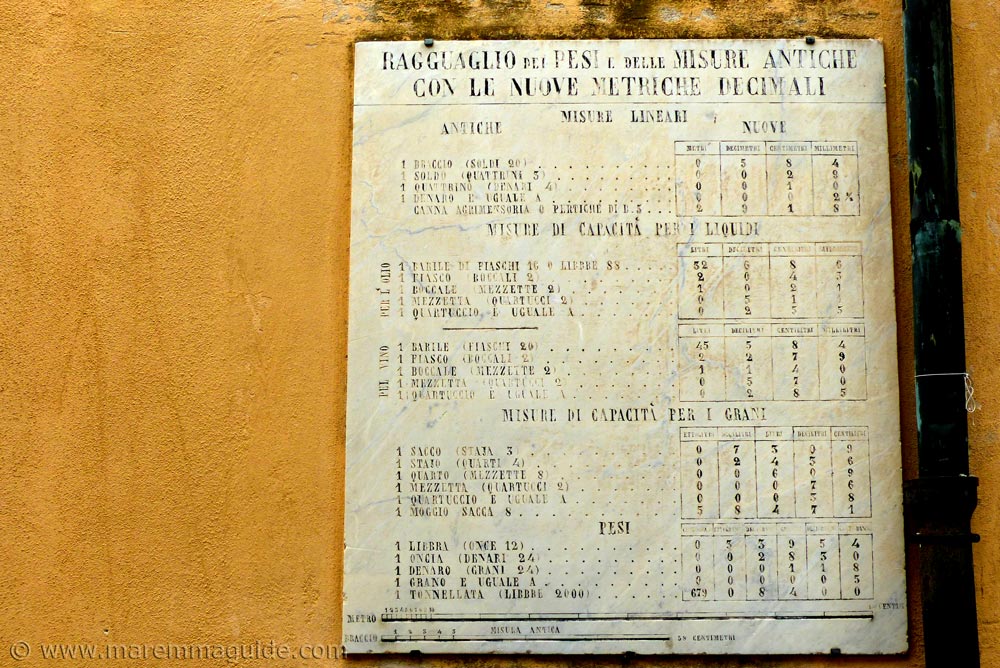 RAGGUAGLIO DEI PESI E DELLE MISURE ANTICHE
CON LE NUOVE METRICHE DECIMALI
MISURE LINEARI
ANTICHE NUOVE
METRI DECIMETRI CENTIMETRI MILLIMETRI
1 BRACCIO (SOLDI 20) 0 5 8 4
1 SOLDO (QUATTRINI 3) 0 0 2 9
1 QUATTRINO (DENARI 4) 0 0 1 0
1 DENARO E UGUALE A 0 0 0 2
CANNA AGRIMENSORIA O PERTICHE DI B. 5 2 9 1 8
MISURE DI CAPACITÀ PER I LIQUIDI
LITRI DECILITRI CENTILITRI
PER L'OLIO
1 BARILE DI FIASCHI 16 O LIBBRE 88 32 6 8 6
1 FIASCO (BOCCALI 2) 2 0 4 3
1 BOCCALE (MEZZETTE 2) 1 0 2 1
1 MEZZETTA (QUARTUCCI 2) 0 5 1 1
1 QUARTUCCIO E UGUALE A 0 2 5 5
LITRI DECILITRI CENTILITRI MILLILITRI
PEL VINO
1 BARILE (FIASCHI 20) 45 5 8 4
1 FIASCO (BOCCALI 2) 2 2 7 9
1 BOCCALE (MEZZETTE 2) 1 1 4 0
1 MEZZETTA (QUARTUCCI 2) 0 5 7 0
1 QUARTUCCIO E UGUALE A 0 2 8 5
MISURE DI CAPACITÀ PER I GRANI
ETTOLITRI DECALITRI LITRI DECILITRI CENTILITRI
1 SACCO (STAJA 3) 0 7 3 0 9
1 STAJO (QUARTI 4) 0 2 4 3 6
1 QUARTO (MEZZETTE 8) 0 0 6 0 9
1 MEZZETTA (QUARTUCCI 2) 0 0 0 7 6
1 QUARTUCCIO E UGUALE A 0 0 0 3 8
1 MOGGIO SACCA 8 5 8 4 7 1
PESI
1 LIBBRA (ONCE 12) 0 3 3 9 5 4
1 ONCIA (DENARI 24) 0 0 2 8 3 0
1 DENARO (GRANI 24) 0 0 0 1 1 8
1 GRANO E UGUALE A 0 0 0 0 0 5
1 TONNELLATA (LIBBRE 2000) 679 0 8 4 0 0
METRO
1 2 3 4 5 MISURA ANTICA
BRACCIO 58 CENTIMETRI
© www.maremmaguide.com